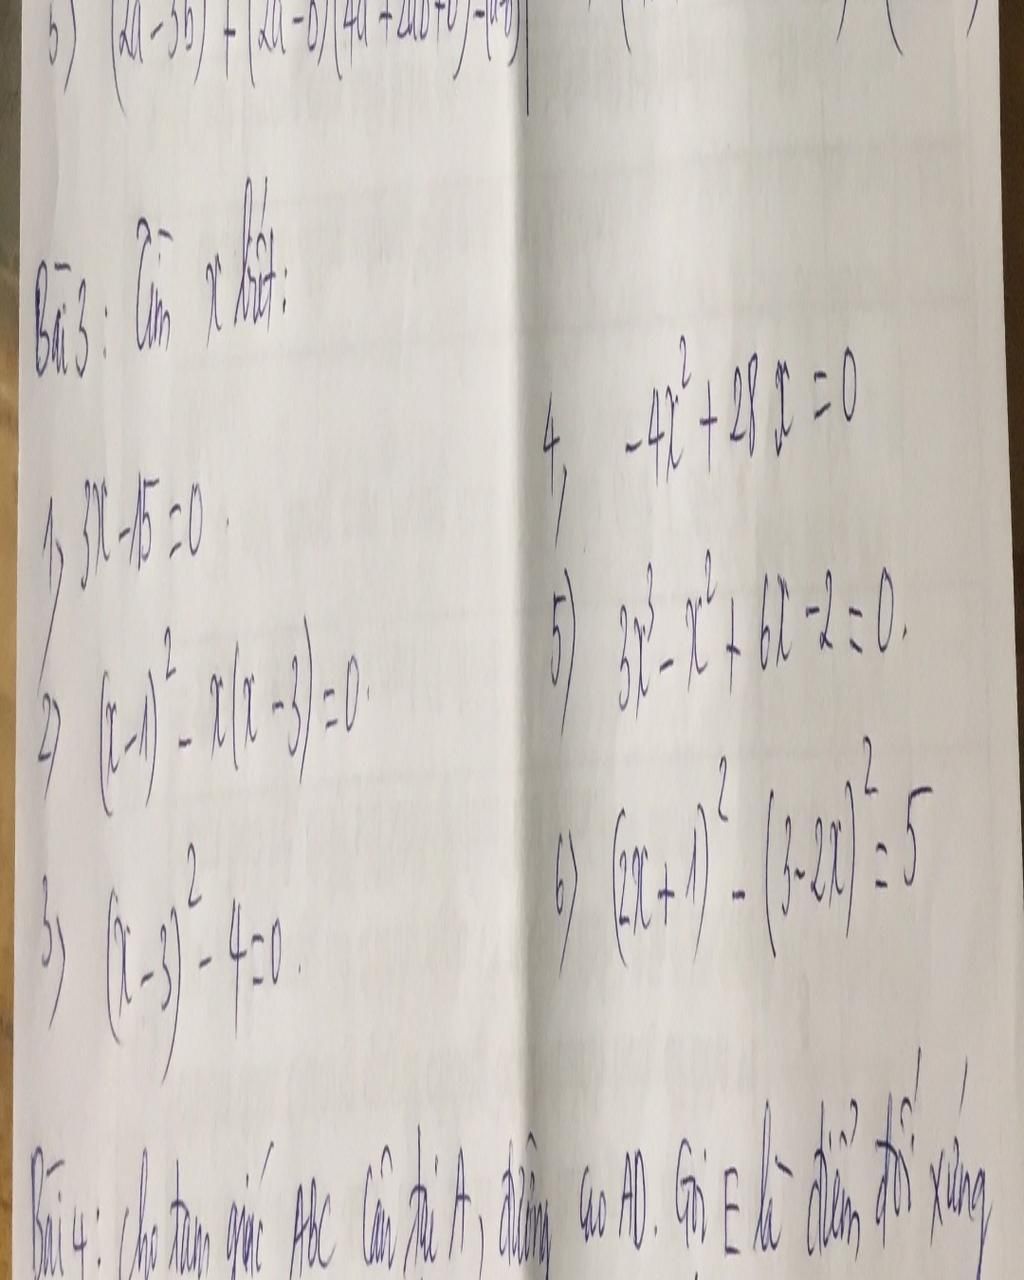 b) (2a-3b) + (2a-b)(4a²+2ab+b²)-(a-b)
Bài 3: Tìm x biết:
1, 3x-15=0.
2) (x-1)² - x(x-3)=0.
3) (x-3)² - 4=0.
4, -4x² + 28x = 0
5) 3x³ - x² + 6x - 2 = 0.
6) (2x+1)² - (3-2x)² = 5
Bài 4: Cho tam giác ABC cân tại A, đường cao AD. Gọi E là điểm đối xứng